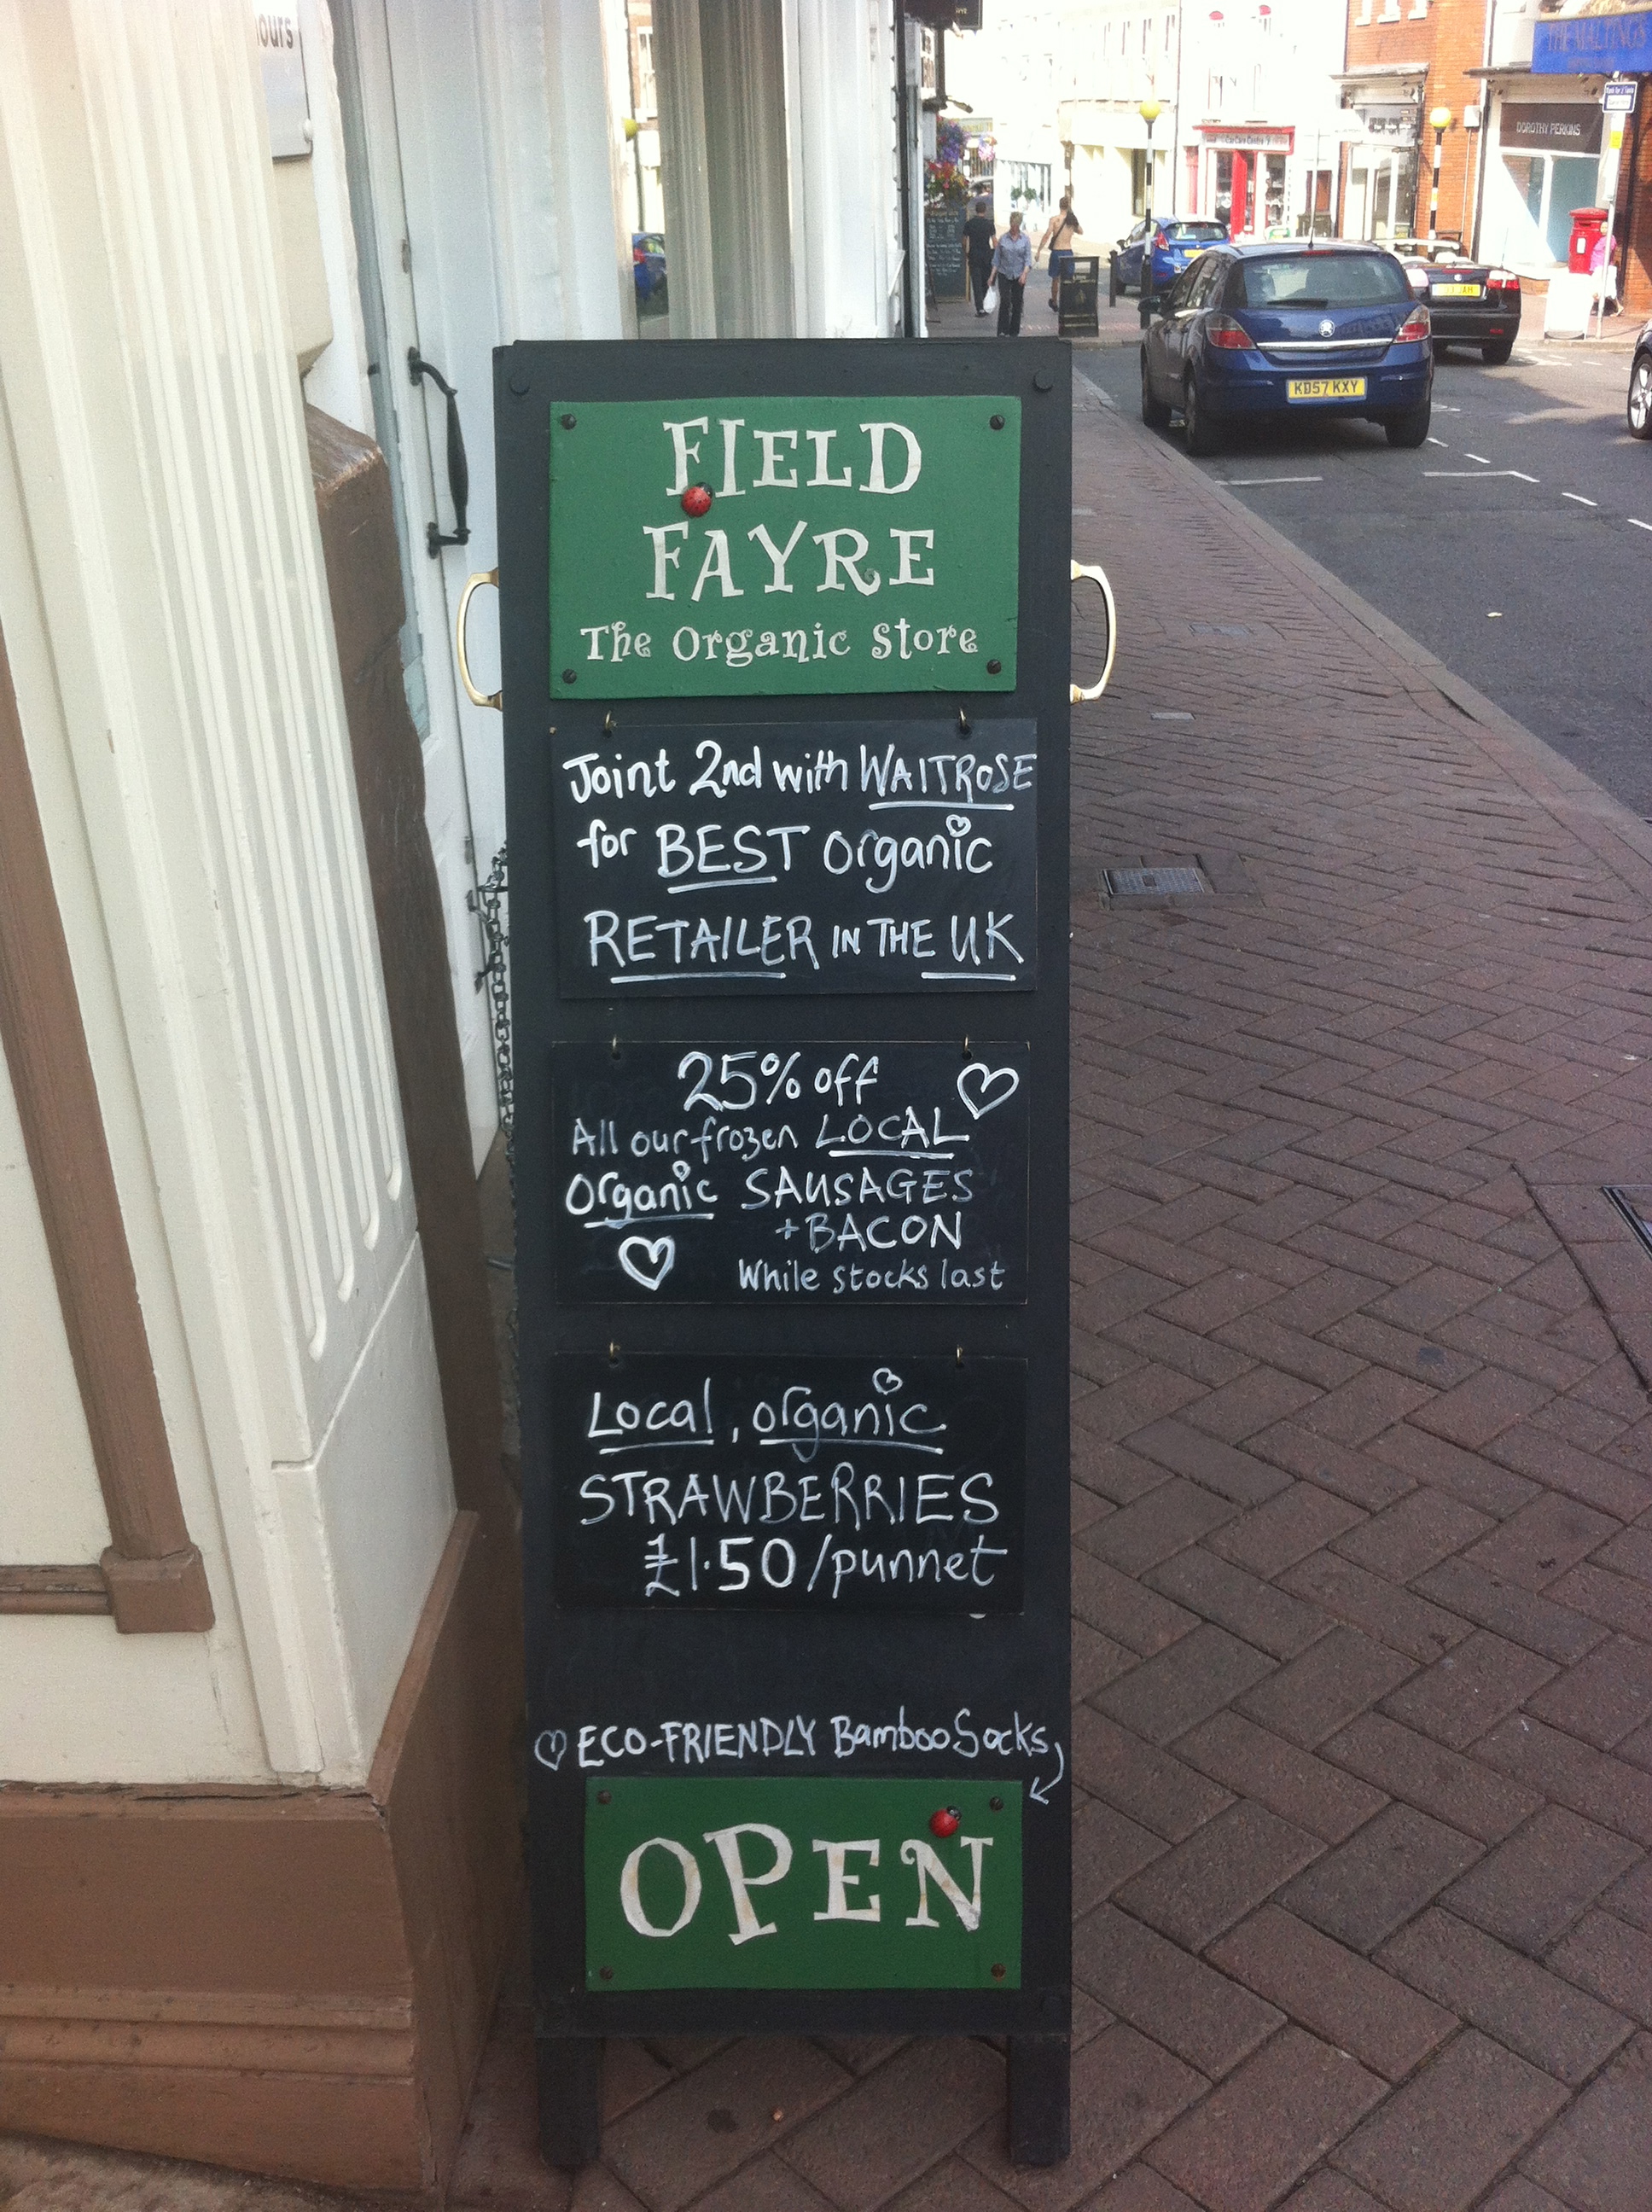 FIELD
FAYRE
The Organic Store
Joint 2nd with WAITROSE
for BEST organic
RETAILER IN THE UK
25% off
All our frozen LOCAL
organic SAUSAGES
+ BACON
While stocks last
Local, organic
STRAWBERRIES
£1.50/punnet
ECO-FRIENDLY Bamboo Socks
OPEN
KD57 KXY
DOROTHY PERKINS
THE MALTINGS
ours